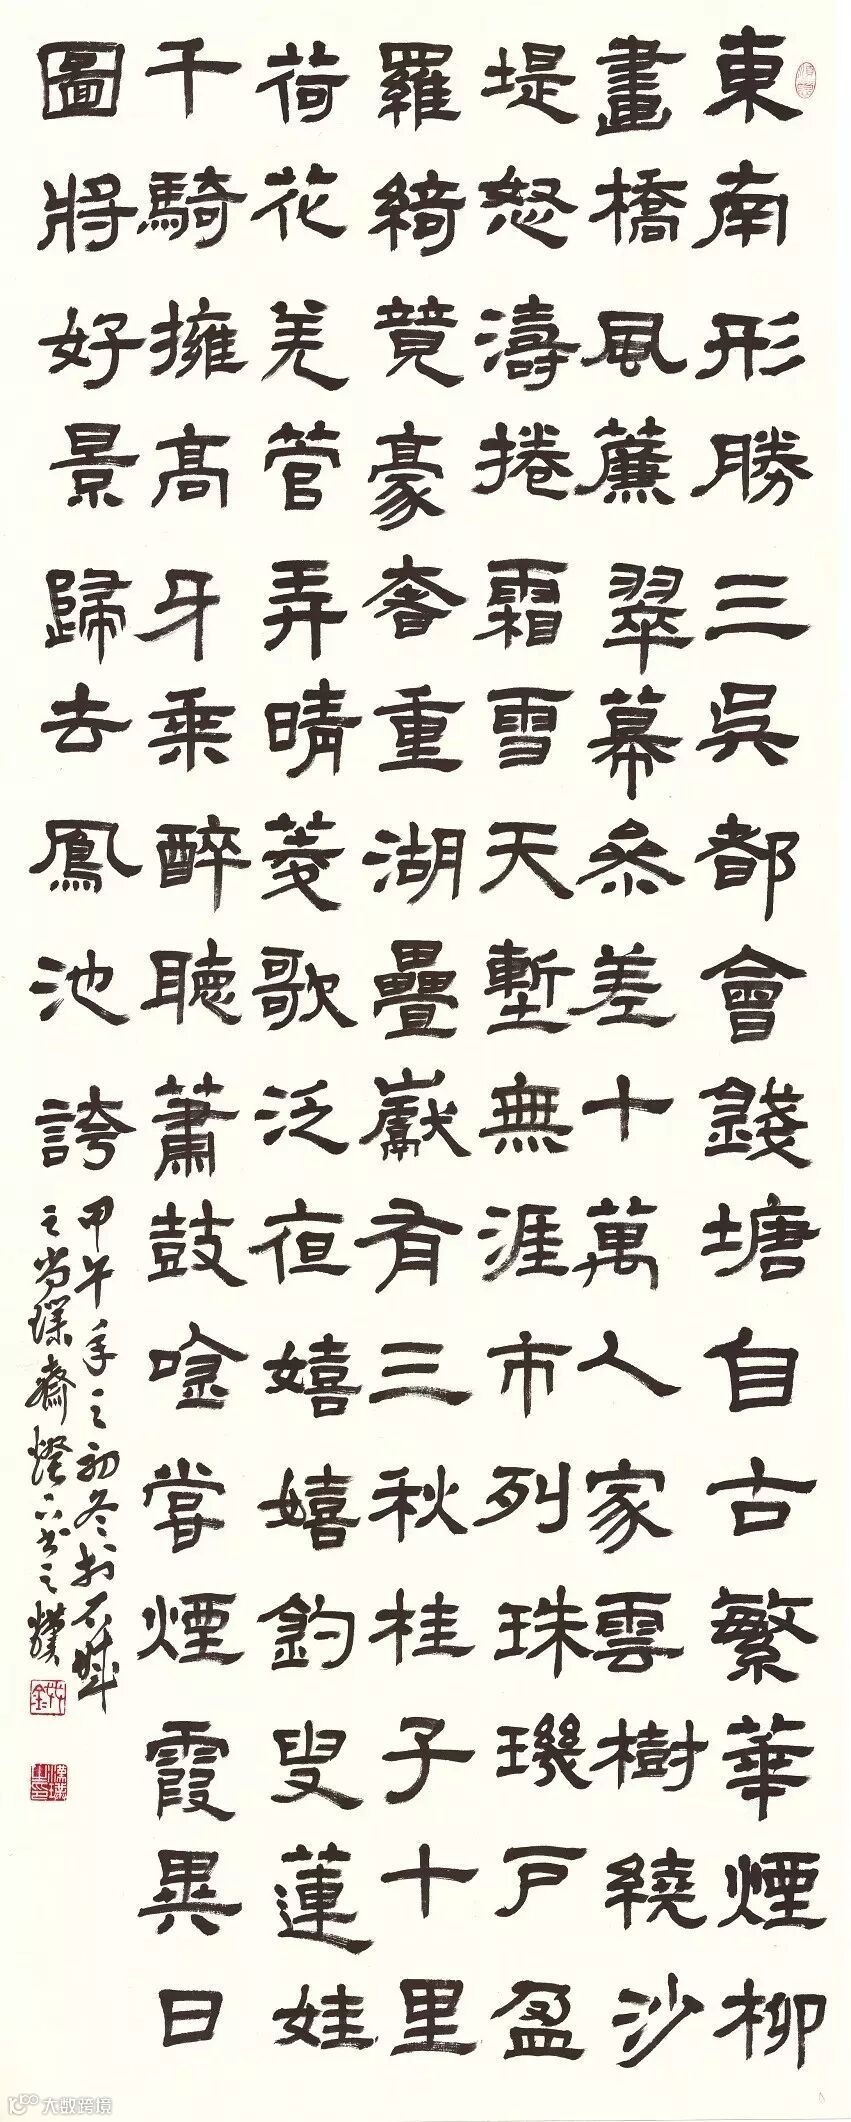 東南形勝三吳都會錢塘自古繁華煙柳
畫橋風簾翠幕參差十萬人家雲樹繞沙
堤怒濤捲霜雪天塹無涯市列珠璣戶盈
羅綺竟豪奢重湖疊巘有三秋桂子十里
荷花羌管弄晴菱歌泛夜嬉嬉釣叟蓮娃
千騎擁高牙乘醉聽蕭鼓唫嘗煙霞異日
圖將好景歸去鳳池誇
甲午年之初冬於石城
之尚璞齋燈下書之
大数跨境